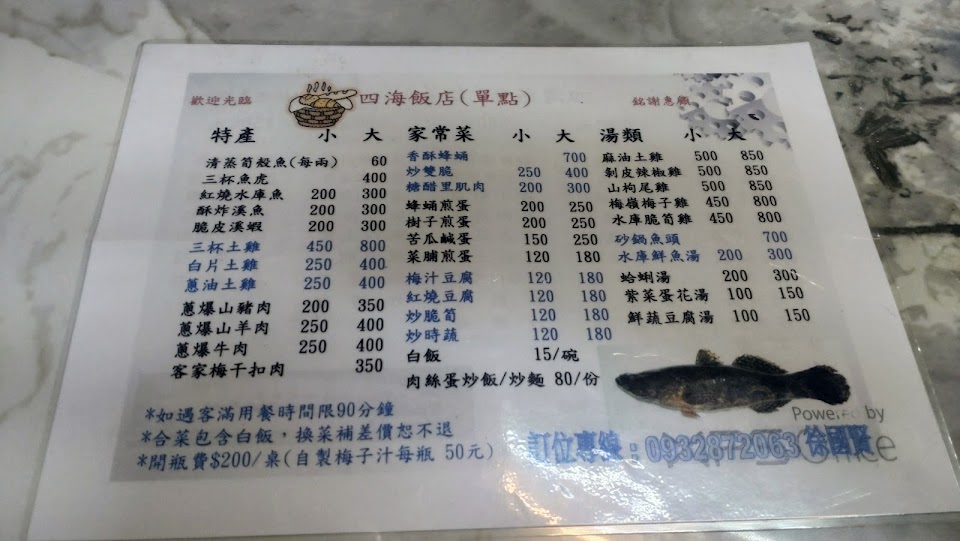 歡迎光臨 四海飯店(單點) 銘謝惠顧
特產 小 大
清蒸筍殼魚(每兩) 60
三杯魚虎 400
紅燒水庫魚 200 300
酥炸溪魚 200 300
脆皮溪蝦 200 300
三杯土雞 450 800
白片土雞 250 400
蔥油土雞 250 400
蔥爆山豬肉 200 350
蔥爆山羊肉 250 400
蔥爆牛肉 250 400
客家梅干扣肉 350
家常菜 小 大
香酥蜂蛹 700
炒雙脆 250 400
糖醋里肌肉 200 300
蜂蛹煎蛋 200 250
樹子煎蛋 200 250
苦瓜鹹蛋 150 250
菜脯煎蛋 120 180
梅汁豆腐 120 180
紅燒豆腐 120 180
炒脆筍 120 180
炒時蔬 120 180
白飯 15/碗
肉絲蛋炒飯/炒麵 80/份
湯類 小 大
麻油土雞 500 850
剝皮辣椒雞 500 850
山枸尾雞 500 850
梅嶺梅子雞 450 800
水庫脆筍雞 450 800
砂鍋魚頭 700
水庫鮮魚湯 200 300
蛤蜊湯 200 300
紫菜蛋花湯 100 150
鮮蔬豆腐湯 100 150
*如遇客滿用餐時間限90分鐘
*合菜包含白飯，換菜補差價恕不退
*開瓶費$200/桌(自製梅子汁每瓶 50元)
Powered by
訂位專線：0932872063 徐國賢